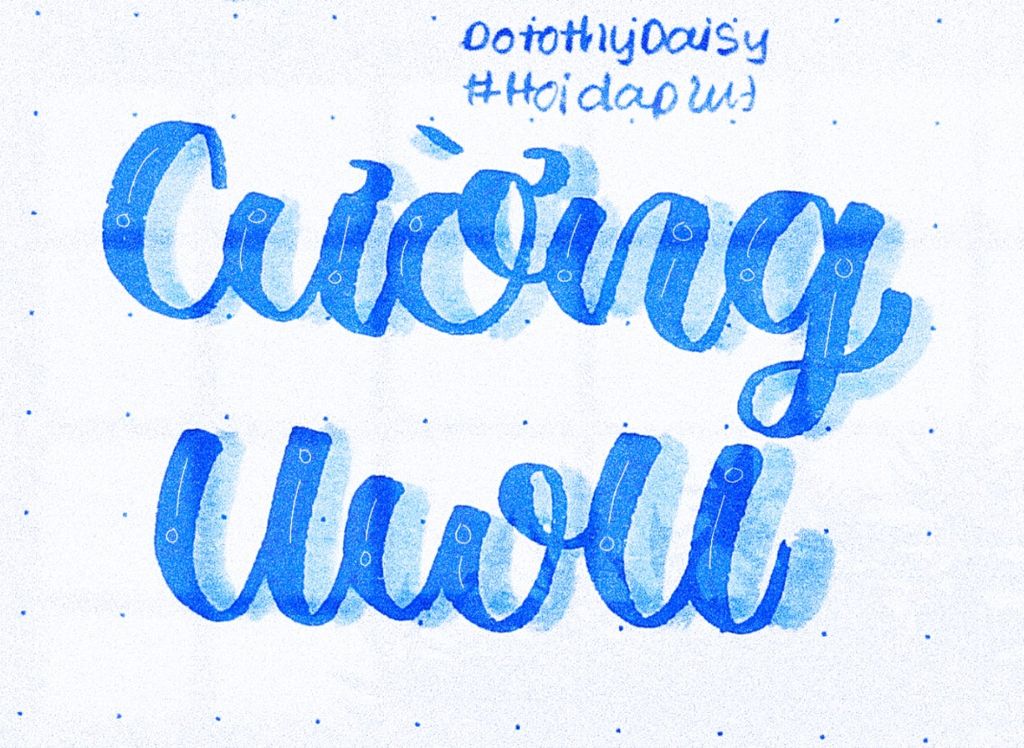 DorothyDaisy
#Hoidap247
Cường
UwU